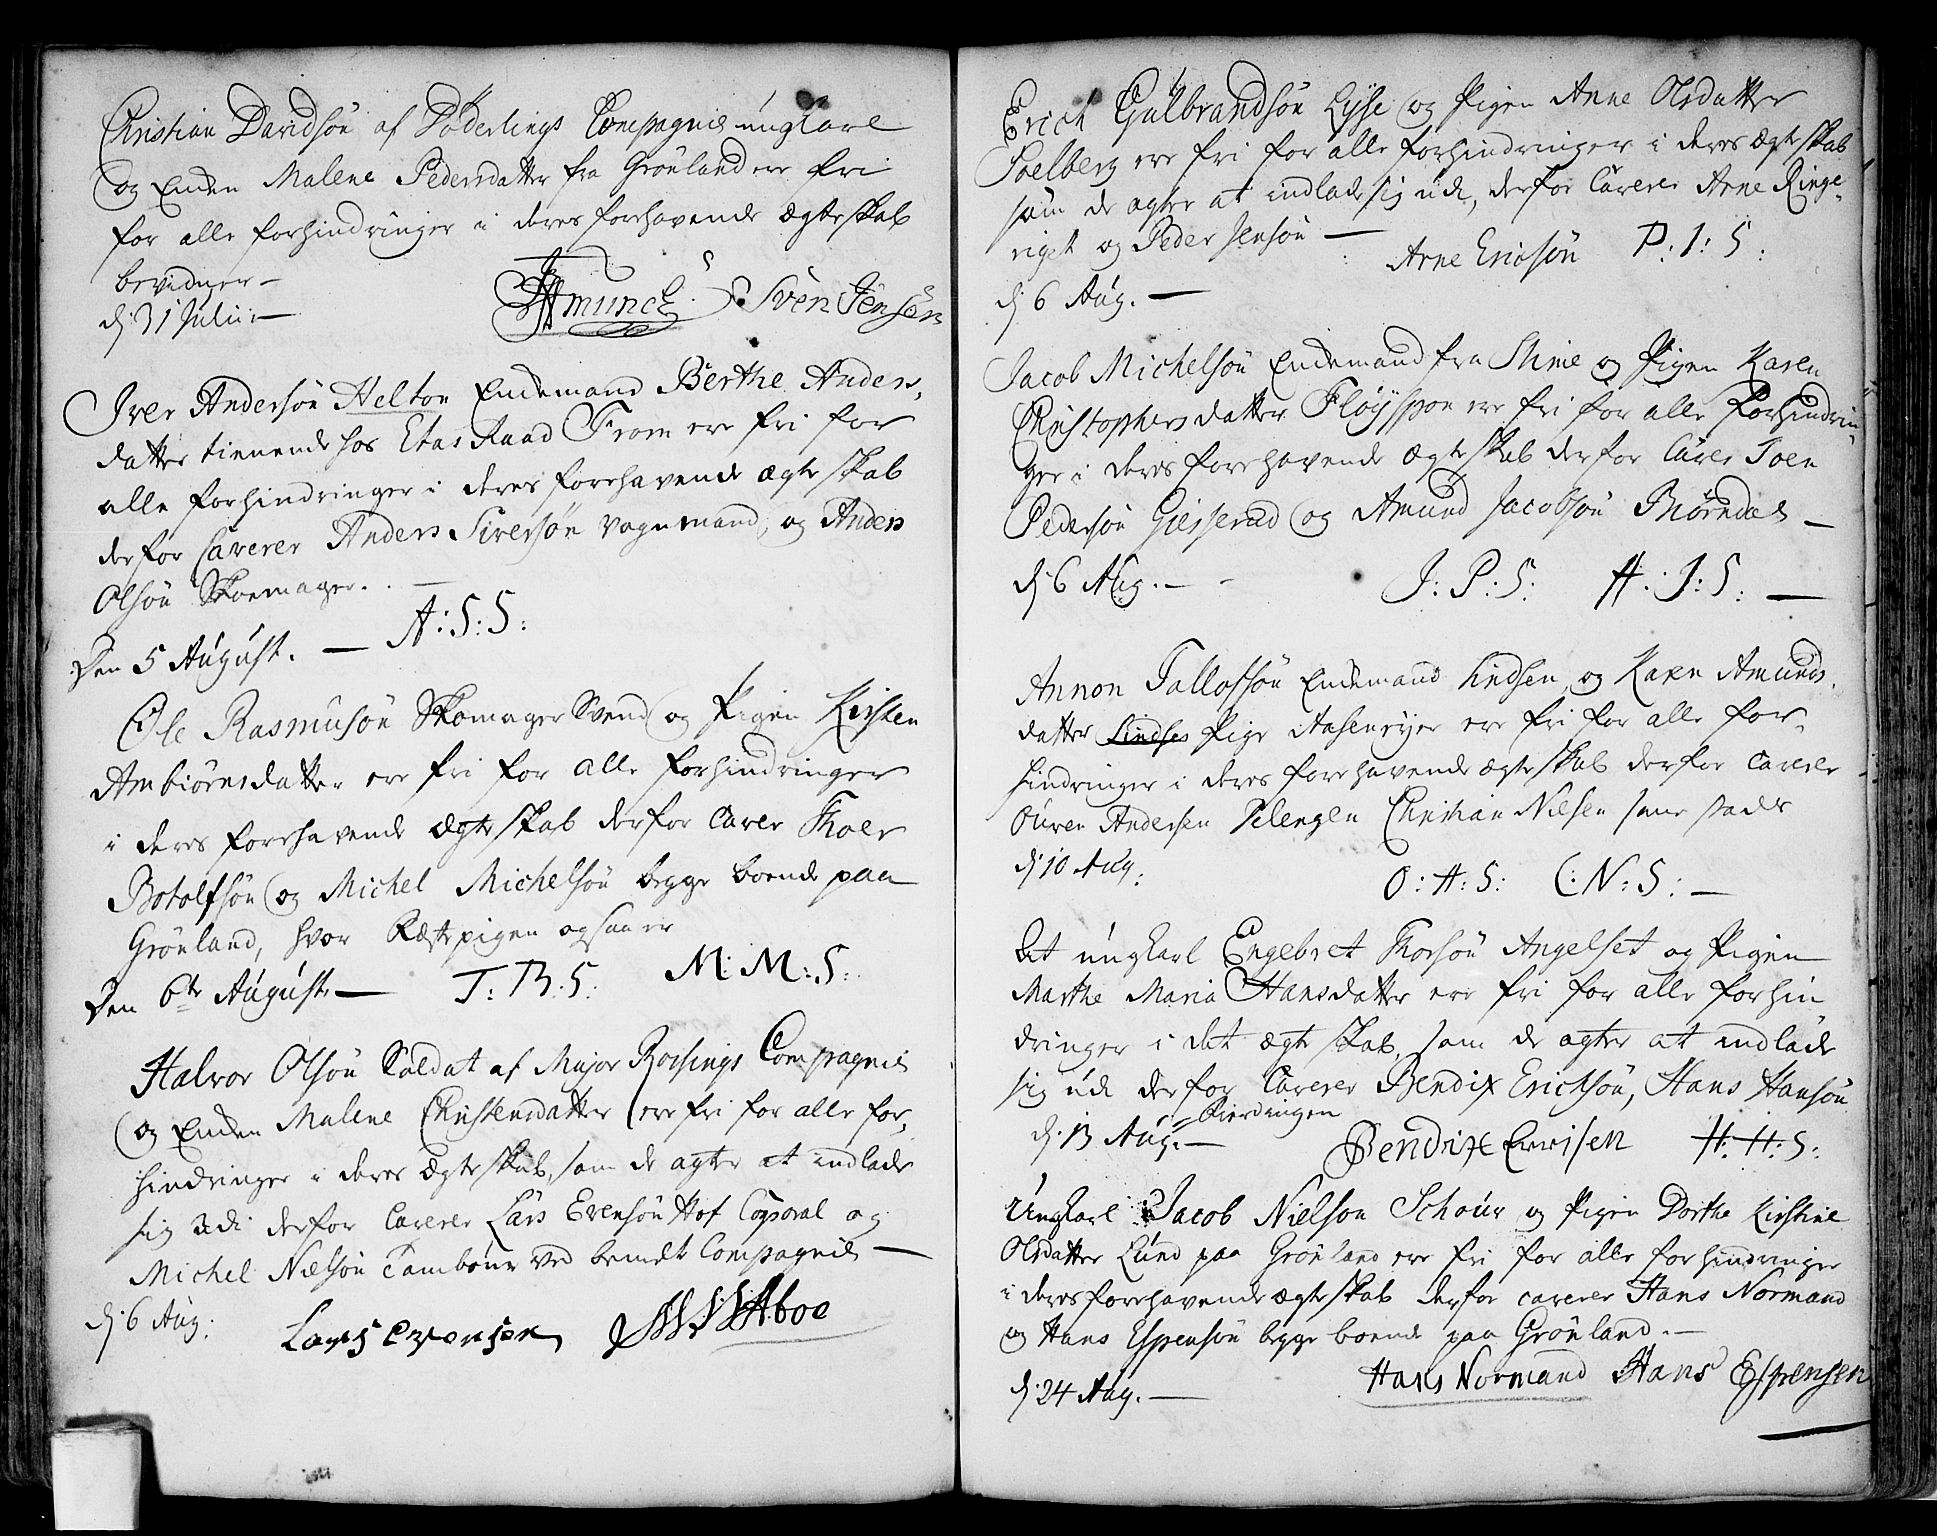 Christian Davidsøn af Døderlings Compagnie ungkarl
og Enken Malene Pedersdatter fra Grønland ere fri
for alle forhindringer i deres forehavende Ægteskab
bevidner –
d. 31 Julii –
Munch Sven Jensøn
Iver Andersøn Helton Enkemand Berthe Anders,
datter tienende hos Etas Raad From ere fri for
alle forhindringer i deres forehavende ægteskab
derfor Caverer Anders Siversøn vognmand, og Anders
Olsøn Skoemager. –
Den 5 August. – A: S: S:
Ole Rasmusøn Skomager Svend og Pigen Kirsten
Ambiørnsdatter ere fri for alle forhindringer
i deres forehavende ægteskab derfor Caver Thoer
Botolfsøn og Michel Michelsøn begge boende paa
Grønland, hvor Fæstepigen ogsaa er
Den 6te August – T: B: S: M: M: S:
Halvor Olsøn Soldat af Major Rossings Compagnie
og Enken Malene Christensdatter ere fri for alle for,
hindringer i deres Ægteskab, som de agter at indlade
sig udi derfor Caverer Lars Evensøn Hof Corporal og
Michel Nielsøn Tambour ved bemdte Compagnie –
d. 6 Aug: Lars Evensen Aboe
Erich Gulbrandsøn Lysse og Pigen Anne Olsdatter
Soelberg ere fri for alle forhindringer i deres ægteskab
som de agter at indlade sig udi, derfor Caverer Arne Ringe-
riget og Peder Jensøn – Arne Ericsøn P: I: S:
d. 6 Aug. –
Jacob Michelsøn Enkemand fra Skiie og Pigen Karen
Christophersdatter Fløysspon ere fri for alle Forhindrin-
ger i deres forehavende ægteskab derfor Caver Joen
Pedersøn Giesserud og Amund Jacobsøn Biørndal –
d. 6 Aug. – J: P: S: A: J: S: –
Annon Tallofsøn Enkemand Lindsen, og Karen Amunds,
datter Lindses Pige Aasenryer ere fri for alle for
hindringer i deres forehavende ægteskab derfor Caverer
Ouven Andersen Pelengen Christian Nielsen samestæds
d. 10 Aug. O: A: S: C: N: S: –
At ungkarl Engebret Thorsøn Angelset og Pigen
Marthe Maria Hansdatter ere fri for alle forhin
dringer i det ægteskab, som de agter at indlade
sig udi derfor Caverer Bendix Ericksøn, Hans Hansøn
Fierdingen
d. 13 Aug. – Bendix Ericsen H: H: S:
Ungkarl Jacob Nielson Schour og Pigen Dorthe Kirstine
Olsdatter Lund paa Grønland ere fri for alle forhindringer
i deres forehavende ægteskab derfor caverer Hans Normand
og Hans Espensøn begge boende paa Grønland. –
d. 24 Aug. – Hans Normand Hans Espensen